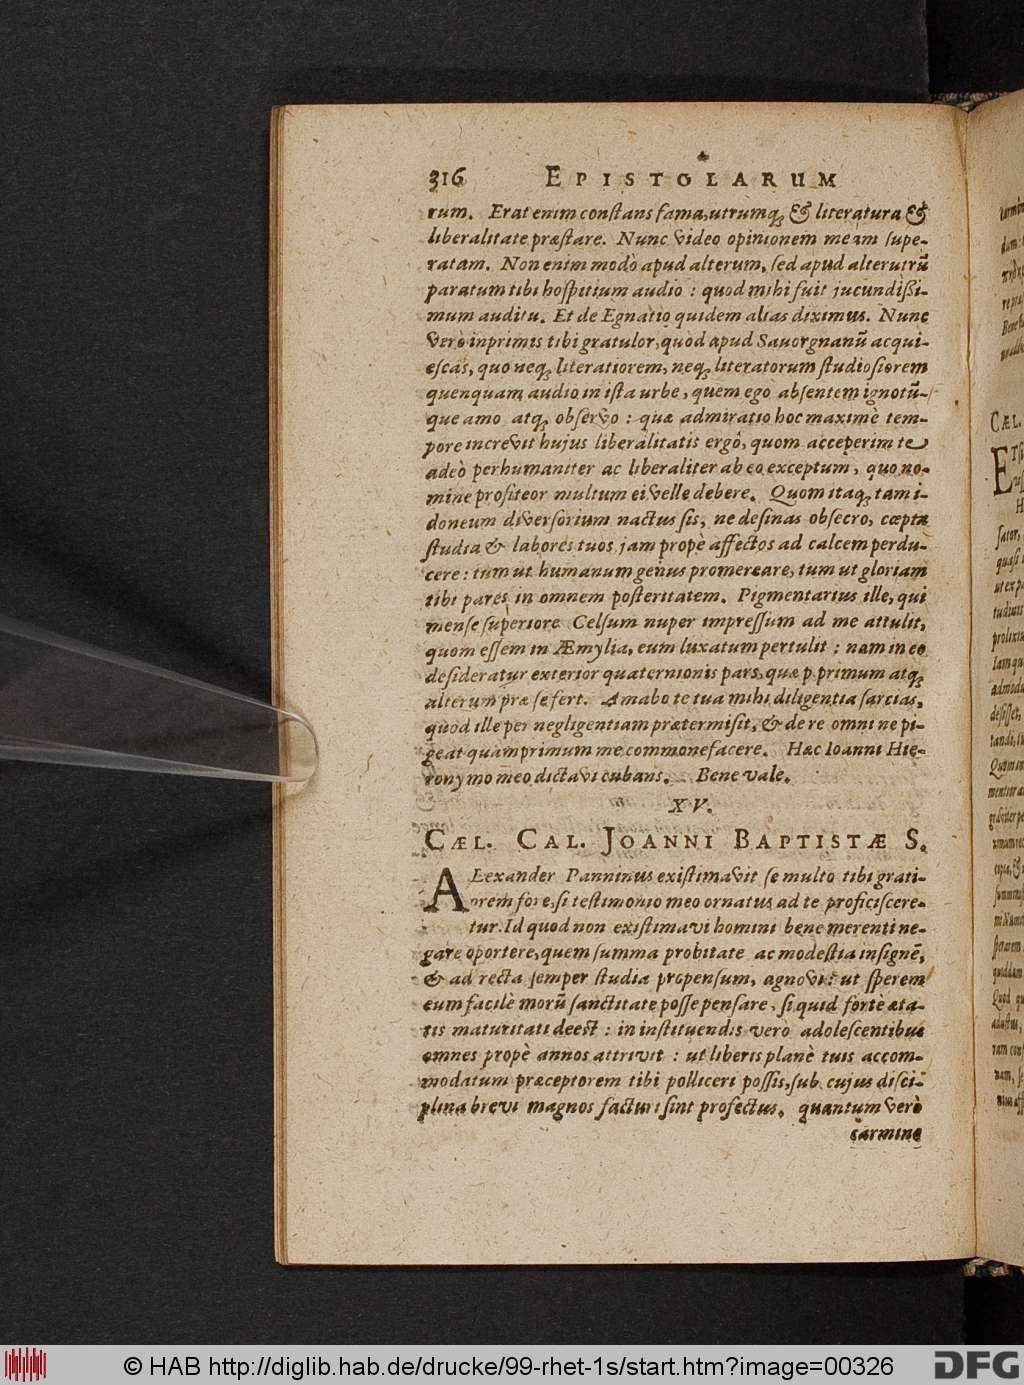 316 EPISTOLARUM
rum. Erat enim conſtans fama, utrumq; & literatura &
liberalitate præſtare. Nunc video opinionem meam ſupe-
ratam. Non enim modò apud alterum, ſed apud alterutrũ
paratum tibi hoſpitium audio : quod mihi fuit jucundißi-
mum auditu. Et de Egnatio quidem alias diximus. Nunc
verò inprimis tibi gratulor, quòd apud Savorgnanũ acqui-
eſcas, quo neq; literatiorem, neq; literatorum ſtudioſiorem
quenquam audio in iſta urbe, quem ego abſentem ignotũ-
que amo atq; obſervo : quæ admiratio hoc maximè tem-
pore increvit hujus liberalitatis ergô, quom acceperim te
adeò perhumaniter ac liberaliter ab eo exceptum, quo no-
mine profiteor multum ei velle debere. Quom itaq; tam i-
doneum diverſorium nactus ſis, ne deſinas obſecro, cœpta
ſtudia & labores tuos jam propè affectos ad calcem perdu-
cere : tum ut humanum genus promereare, tum ut gloriam
tibi pares in omnem poſteritatem. Pigmentarius ille, qui
menſe ſuperiore Celſum nuper impreſſum ad me attulit,
quom eſſem in Æmylia, eum luxatum pertulit ; nam in eo
deſideratur exterior quaternionis pars, quæ p primum atq;
alterum præ ſe fert. Amabo te tua mihi diligentia ſarcias,
quòd ille per negligentiam prætermiſit, & de re omni ne pi-
geat quàm primum me commonefacere. Hæc Ioanni Hie-
ronymo meo dictavi cubans. Bene vale.
XV.
CÆL. CAL. JOANNI BAPTISTÆ S.
ALexander Panninus exiſtimavit ſe multo tibi grati-
orem fore, ſi teſtimonio meo ornatus ad te proficiſcere-
tur. Id quod non exiſtimavi homini bene merenti ne-
gare oportere, quem ſumma probitate ac modeſtia inſignẽ,
& ad recta ſemper ſtudia propenſum, agnovi : ut ſperem
eum facilè morũ ſanctitate poſſe penſare, ſi quid fortè æta-
tis maturitati deeſt : in inſtituendis verò adoleſcentibus
omnes propè annos attrivit : ut liberis planè tuis accom-
modatum præceptorem tibi polliceri poſſis, ſub cujus diſci-
plina brevi magnos facturi ſint profectus, quantum verò
carmine
CÆL.
© HAB http://diglib.hab.de/drucke/99-rhet-1s/start.htm?image=00326
DFG